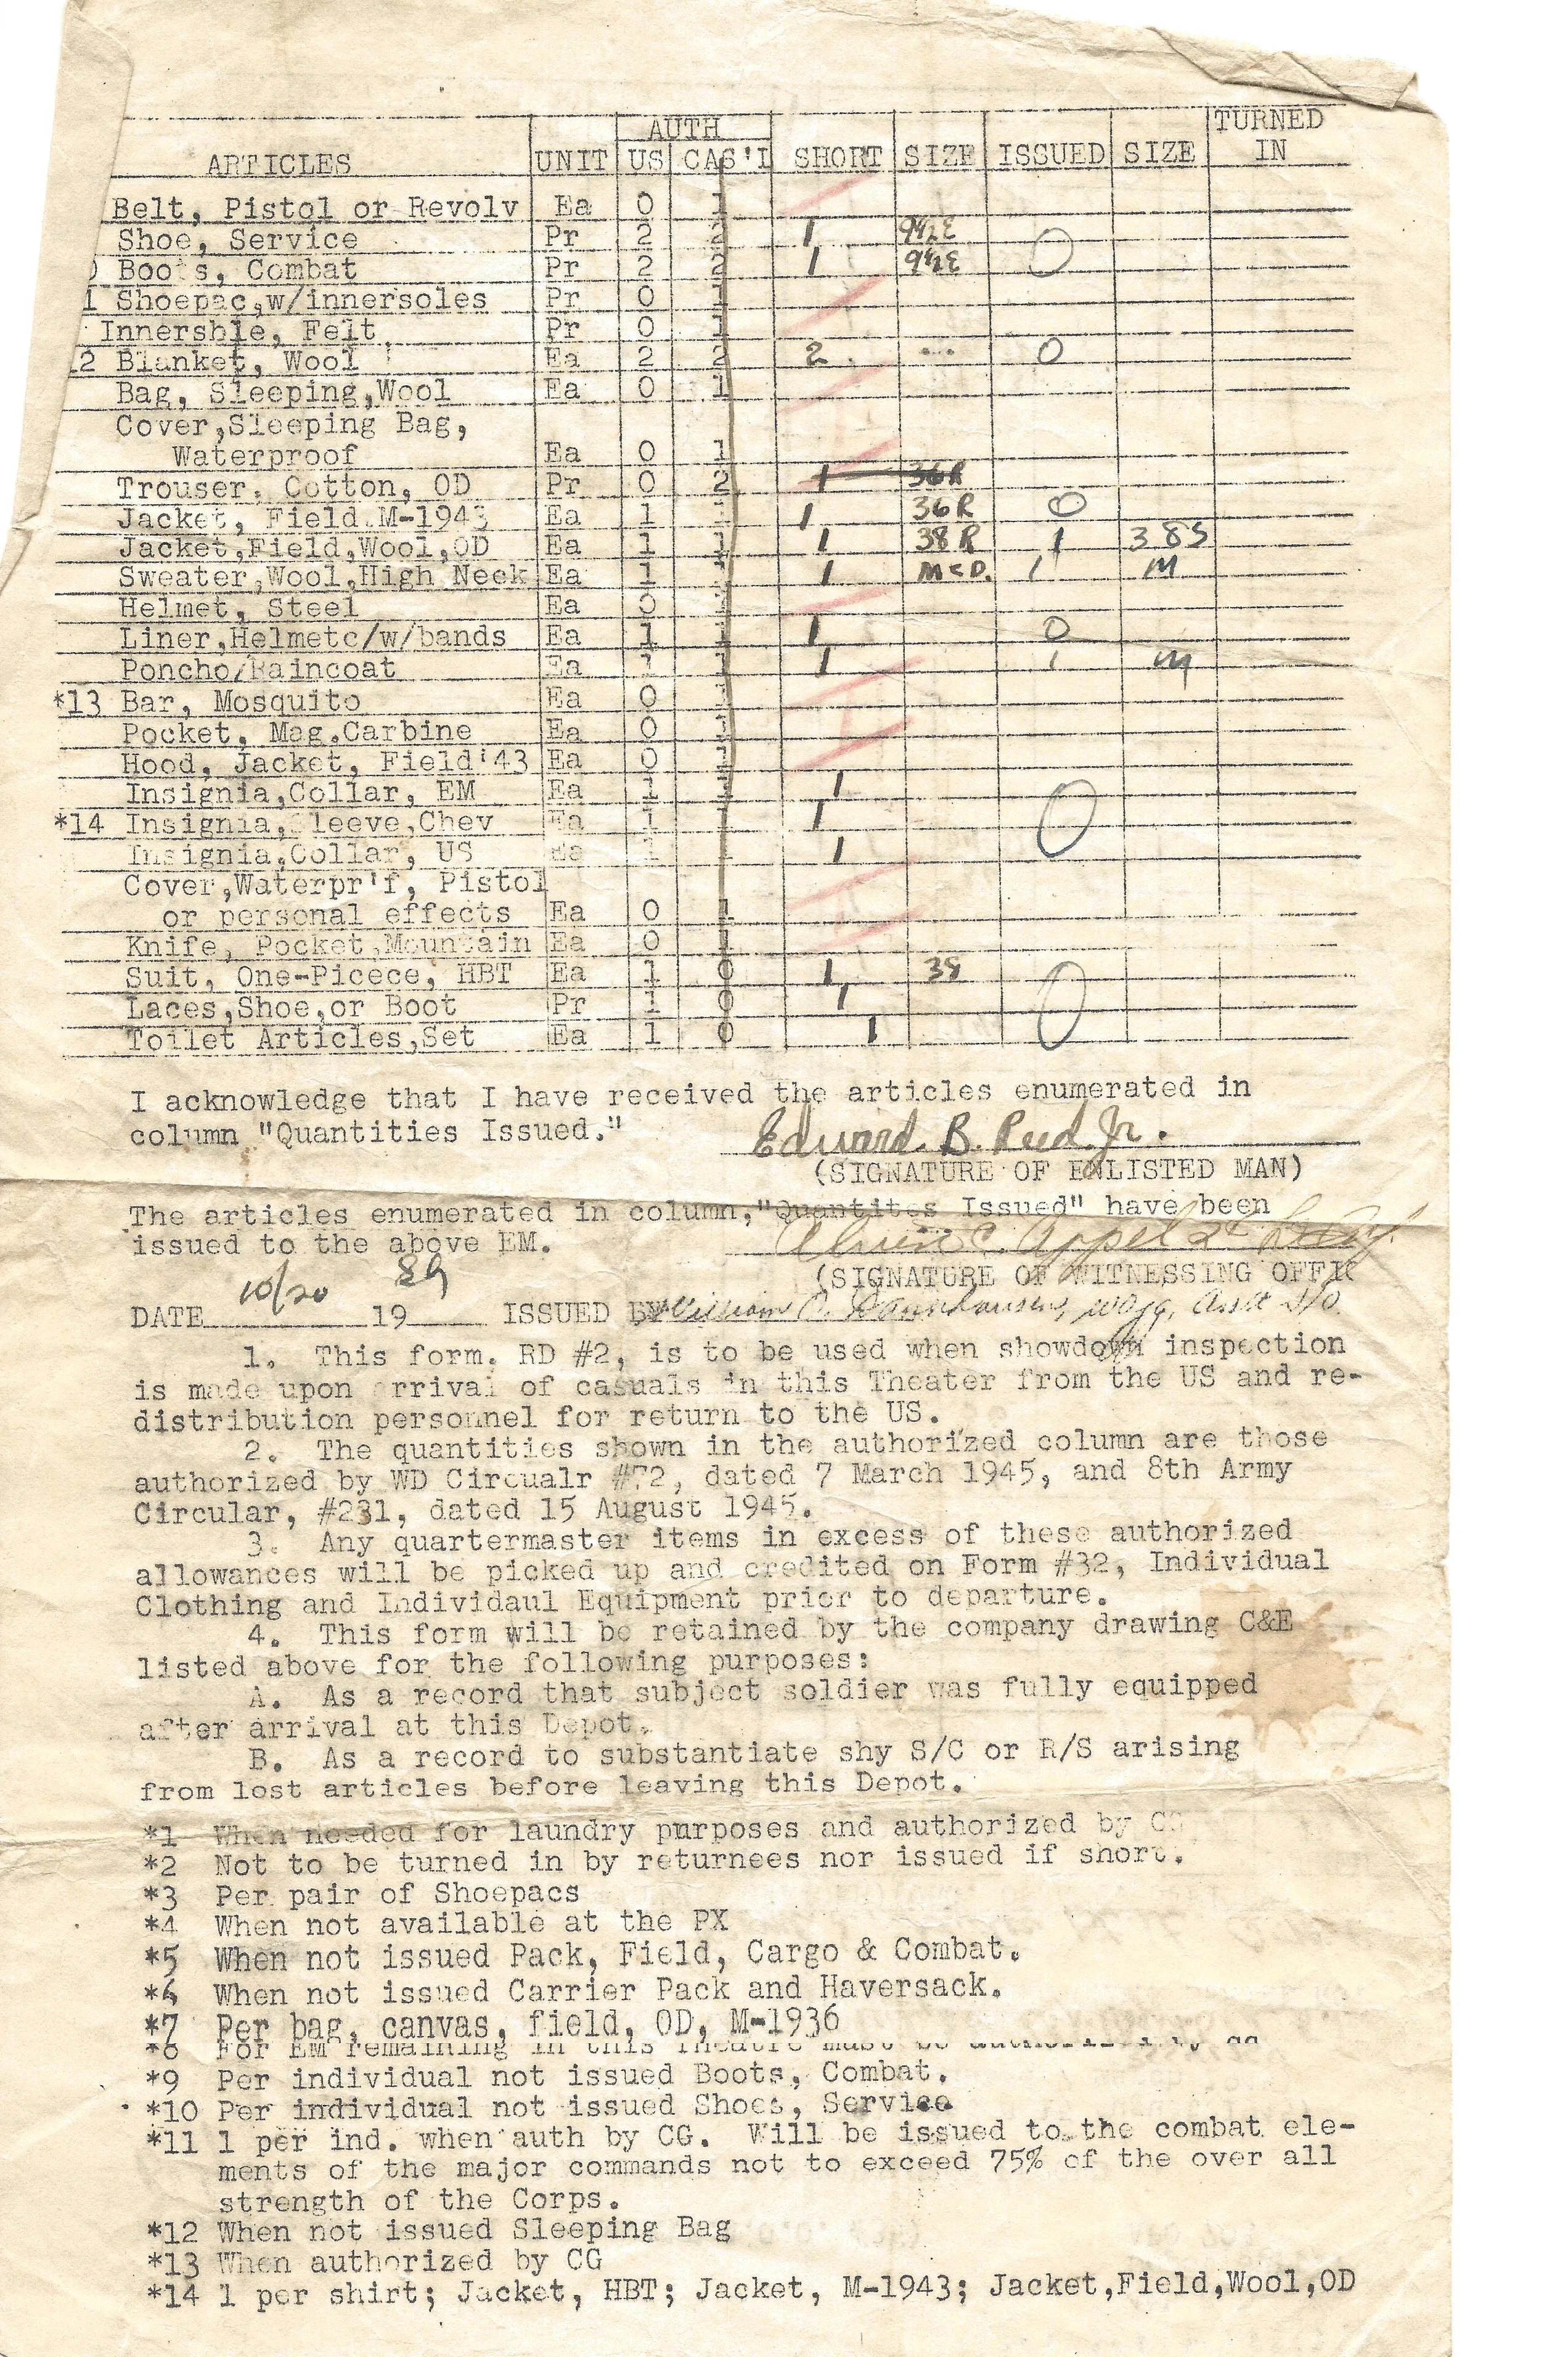 AUTH
TURNED
ARTICLES UNIT US CAS'L SHORT SIZE ISSUED SIZE IN
Belt, Pistol or Revolv Ea 0 1
Shoe, Service Pr 2 2 1 9½E
Boots, Combat Pr 2 2 1 9½E 0
1 Shoepac,w/innersoles Pr 0 1
Innersble, Felt Pr 0 1
12 Blanket, Wool Ea 2 2 2 ... 0
Bag, Sleeping,Wool Ea 0 1
Cover,Sleeping Bag,
Waterproof Ea 0 1
Trouser, Cotton, OD Pr 0 2 1 36R
Jacket, Field M-1943 Ea 1 1 1 36R 0
Jacket,Field,Wool,OD Ea 1 1 1 38R 1 38S
Sweater,Wool,High Neck Ea 1 1 1 MED. 1 M
Helmet, Steel Ea 0 1
Liner,Helmetc/w/bands Ea 1 1 1 0
Poncho/Raincoat Ea 1 1 1 1 M
*13 Bar, Mosquito Ea 0 1
Pocket, Mag.Carbine Ea 0 1
Hood, Jacket, Field'43 Ea 0 1
Insignia,Collar, EM Ea 1 1 1
*14 Insignia,Sleeve,Chev Ea 1 1 1 0
Insignia,Collar, US Ea 1 1 1
Cover,Waterpr'f, Pistol
or personal effects Ea 0 1
Knife, Pocket,Mountain Ea 0 1
Suit, One-Picece, HBT Ea 1 0 1 38
Laces,Shoe,or Boot Pr 1 0 1 0
Toilet Articles,Set Ea 1 0 1
I acknowledge that I have received the articles enumerated in
column "Quantities Issued." Edward B. Reed Jr.
(SIGNATURE OF ENLISTED MAN)
The articles enumerated in column,"Quantites Issued" have been
issued to the above EM. C. Appel 2d Lt
(SIGNATURE OF WITNESSING OFFIC
DATE 10/20 19 ISSUED BY William C. WOJG, Asst S/O
1. This form. RD #2, is to be used when showdown inspection
is made upon arrival of casuals in this Theater from the US and re-
distribution personnel for return to the US.
2. The quantities shown in the authorized column are those
authorized by WD Circualr #72, dated 7 March 1945, and 8th Army
Circular, #231, dated 15 August 1945.
3. Any quartermaster items in excess of these authorized
allowances will be picked up and credited on Form #32, Individual
Clothing and Individaul Equipment prior to departure.
4. This form will be retained by the company drawing C&E
listed above for the following purposes:
A. As a record that subject soldier was fully equipped
after arrival at this Depot.
B. As a record to substantiate shy S/C or R/S arising
from lost articles before leaving this Depot.
*1 When needed for laundry purposes and authorized by CG
*2 Not to be turned in by returnees nor issued if short.
*3 Per pair of Shoepacs
*4 When not available at the PX
*5 When not issued Pack, Field, Cargo & Combat.
*6 When not issued Carrier Pack and Haversack.
*7 Per bag, canvas, field, OD, M-1936
*8 For EM remaining in this Theatre must be authorized by CG
*9 Per individual not issued Boots, Combat.
*10 Per individual not issued Shoes, Service
*11 1 per ind. when auth by CG. Will be issued to the combat ele-
ments of the major commands not to exceed 75% of the over all
strength of the Corps.
*12 When not issued Sleeping Bag
*13 When authorized by CG
*14 1 per shirt; Jacket, HBT; Jacket, M-1943; Jacket,Field,Wool,OD